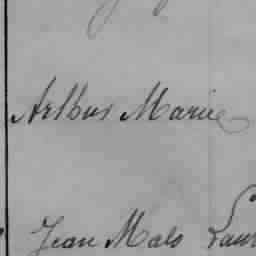 Arthus Marie
Jean Mals